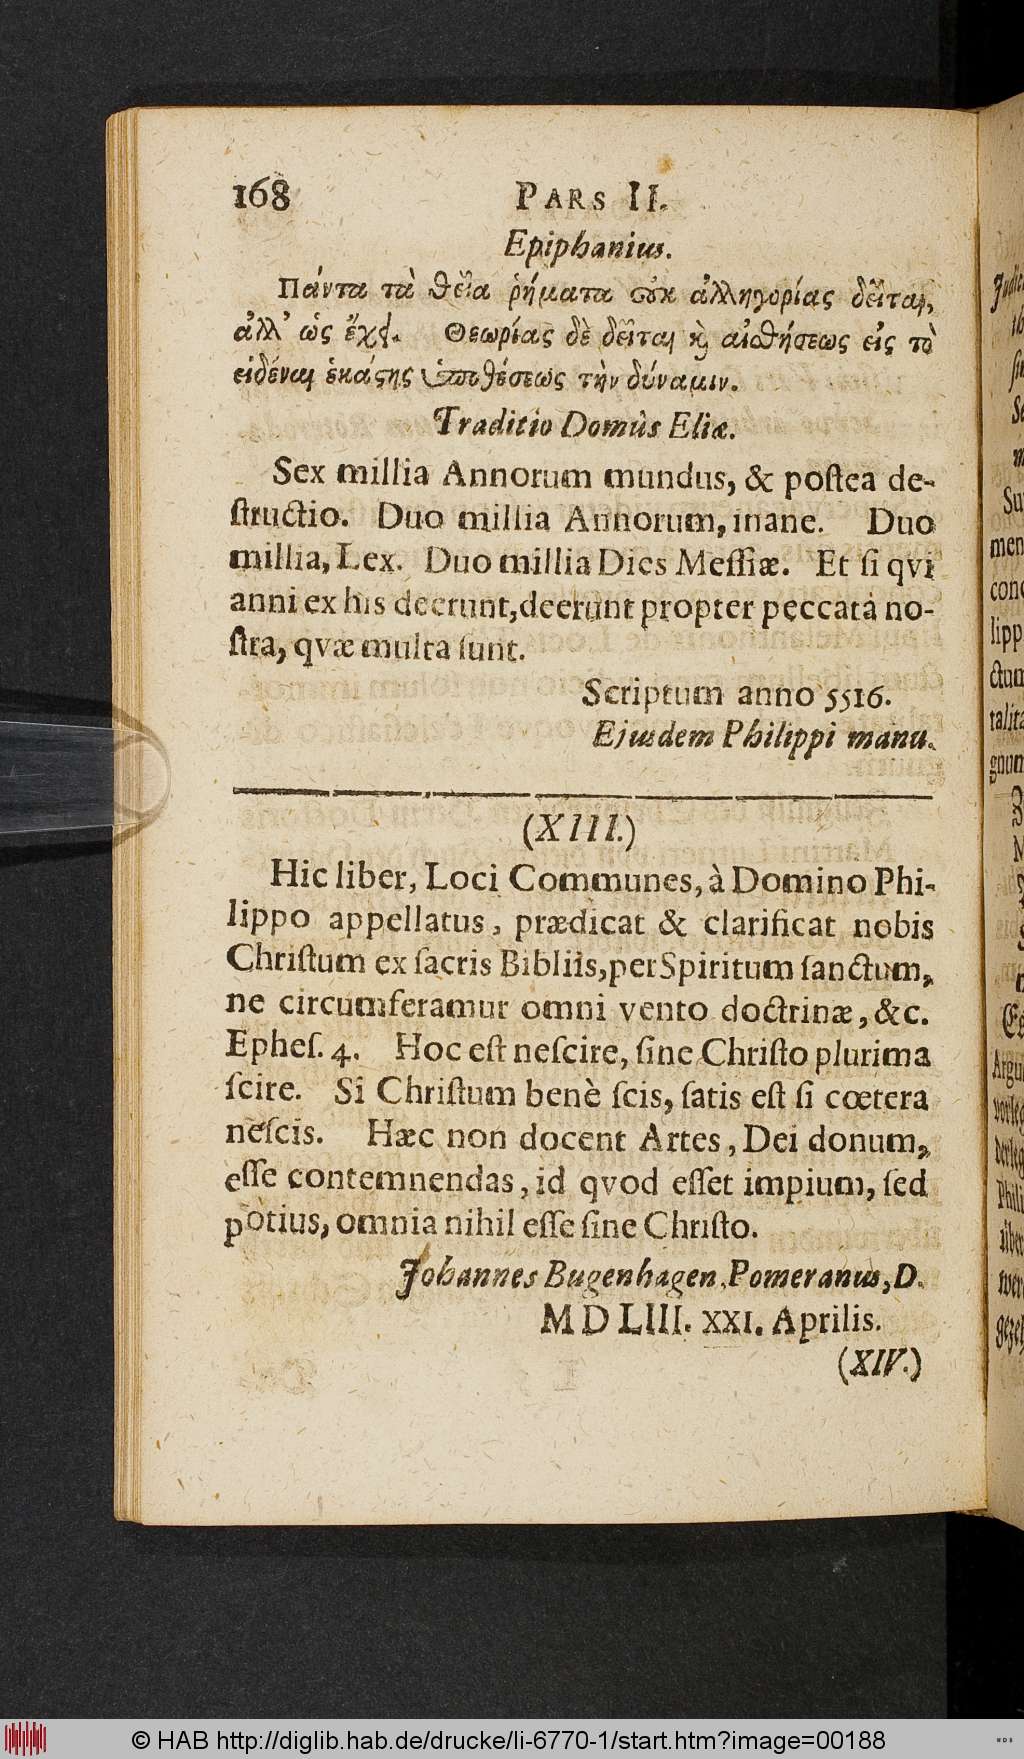 168 PARS II.
Epiphanius.
Πάντα τὰ θεῖα ῥήματα οὐκ ἀλληγορίας δεῖται,
ἀλλ' ὡς ἔχει. Θεωρίας δὲ δεῖται καὶ αἰσθήσεως εἰς τὸ
εἰδέναι ἑκάστης ὑποθέσεως τὴν δύναμιν.
Traditio Domûs Eliæ.
Sex millia Annorum mundus, & poſtea de-
ſtructio. Duo millia Annorum, inane. Duo
millia, Lex. Duo millia Dies Meſſiæ. Et ſi qvi
anni ex his deerunt, deerunt propter peccata no-
ſtra, qvæ multa ſunt.
Scriptum anno 5516.
Ejusdem Philippi manu.
(XIII.)
Hic liber, Loci Communes, à Domino Phi-
lippo appellatus, prædicat & clarificat nobis
Chriſtum ex ſacris Bibliis, per Spiritum ſanctum,
ne circumferamur omni vento doctrinæ, &c.
Epheſ. 4. Hoc eſt neſcire, ſine Chriſto plurima
ſcire. Si Chriſtum benè ſcis, ſatis eſt ſi cœtera
neſcis. Hæc non docent Artes, Dei donum,
eſſe contemnendas, id qvod eſſet impium, ſed
potius, omnia nihil eſſe ſine Chriſto.
Johannes Bugenhagen, Pomeranus, D.
MDLIII. XXI. Aprilis.
(XIV.)
© HAB http://diglib.hab.de/drucke/li-6770-1/start.htm?image=00188